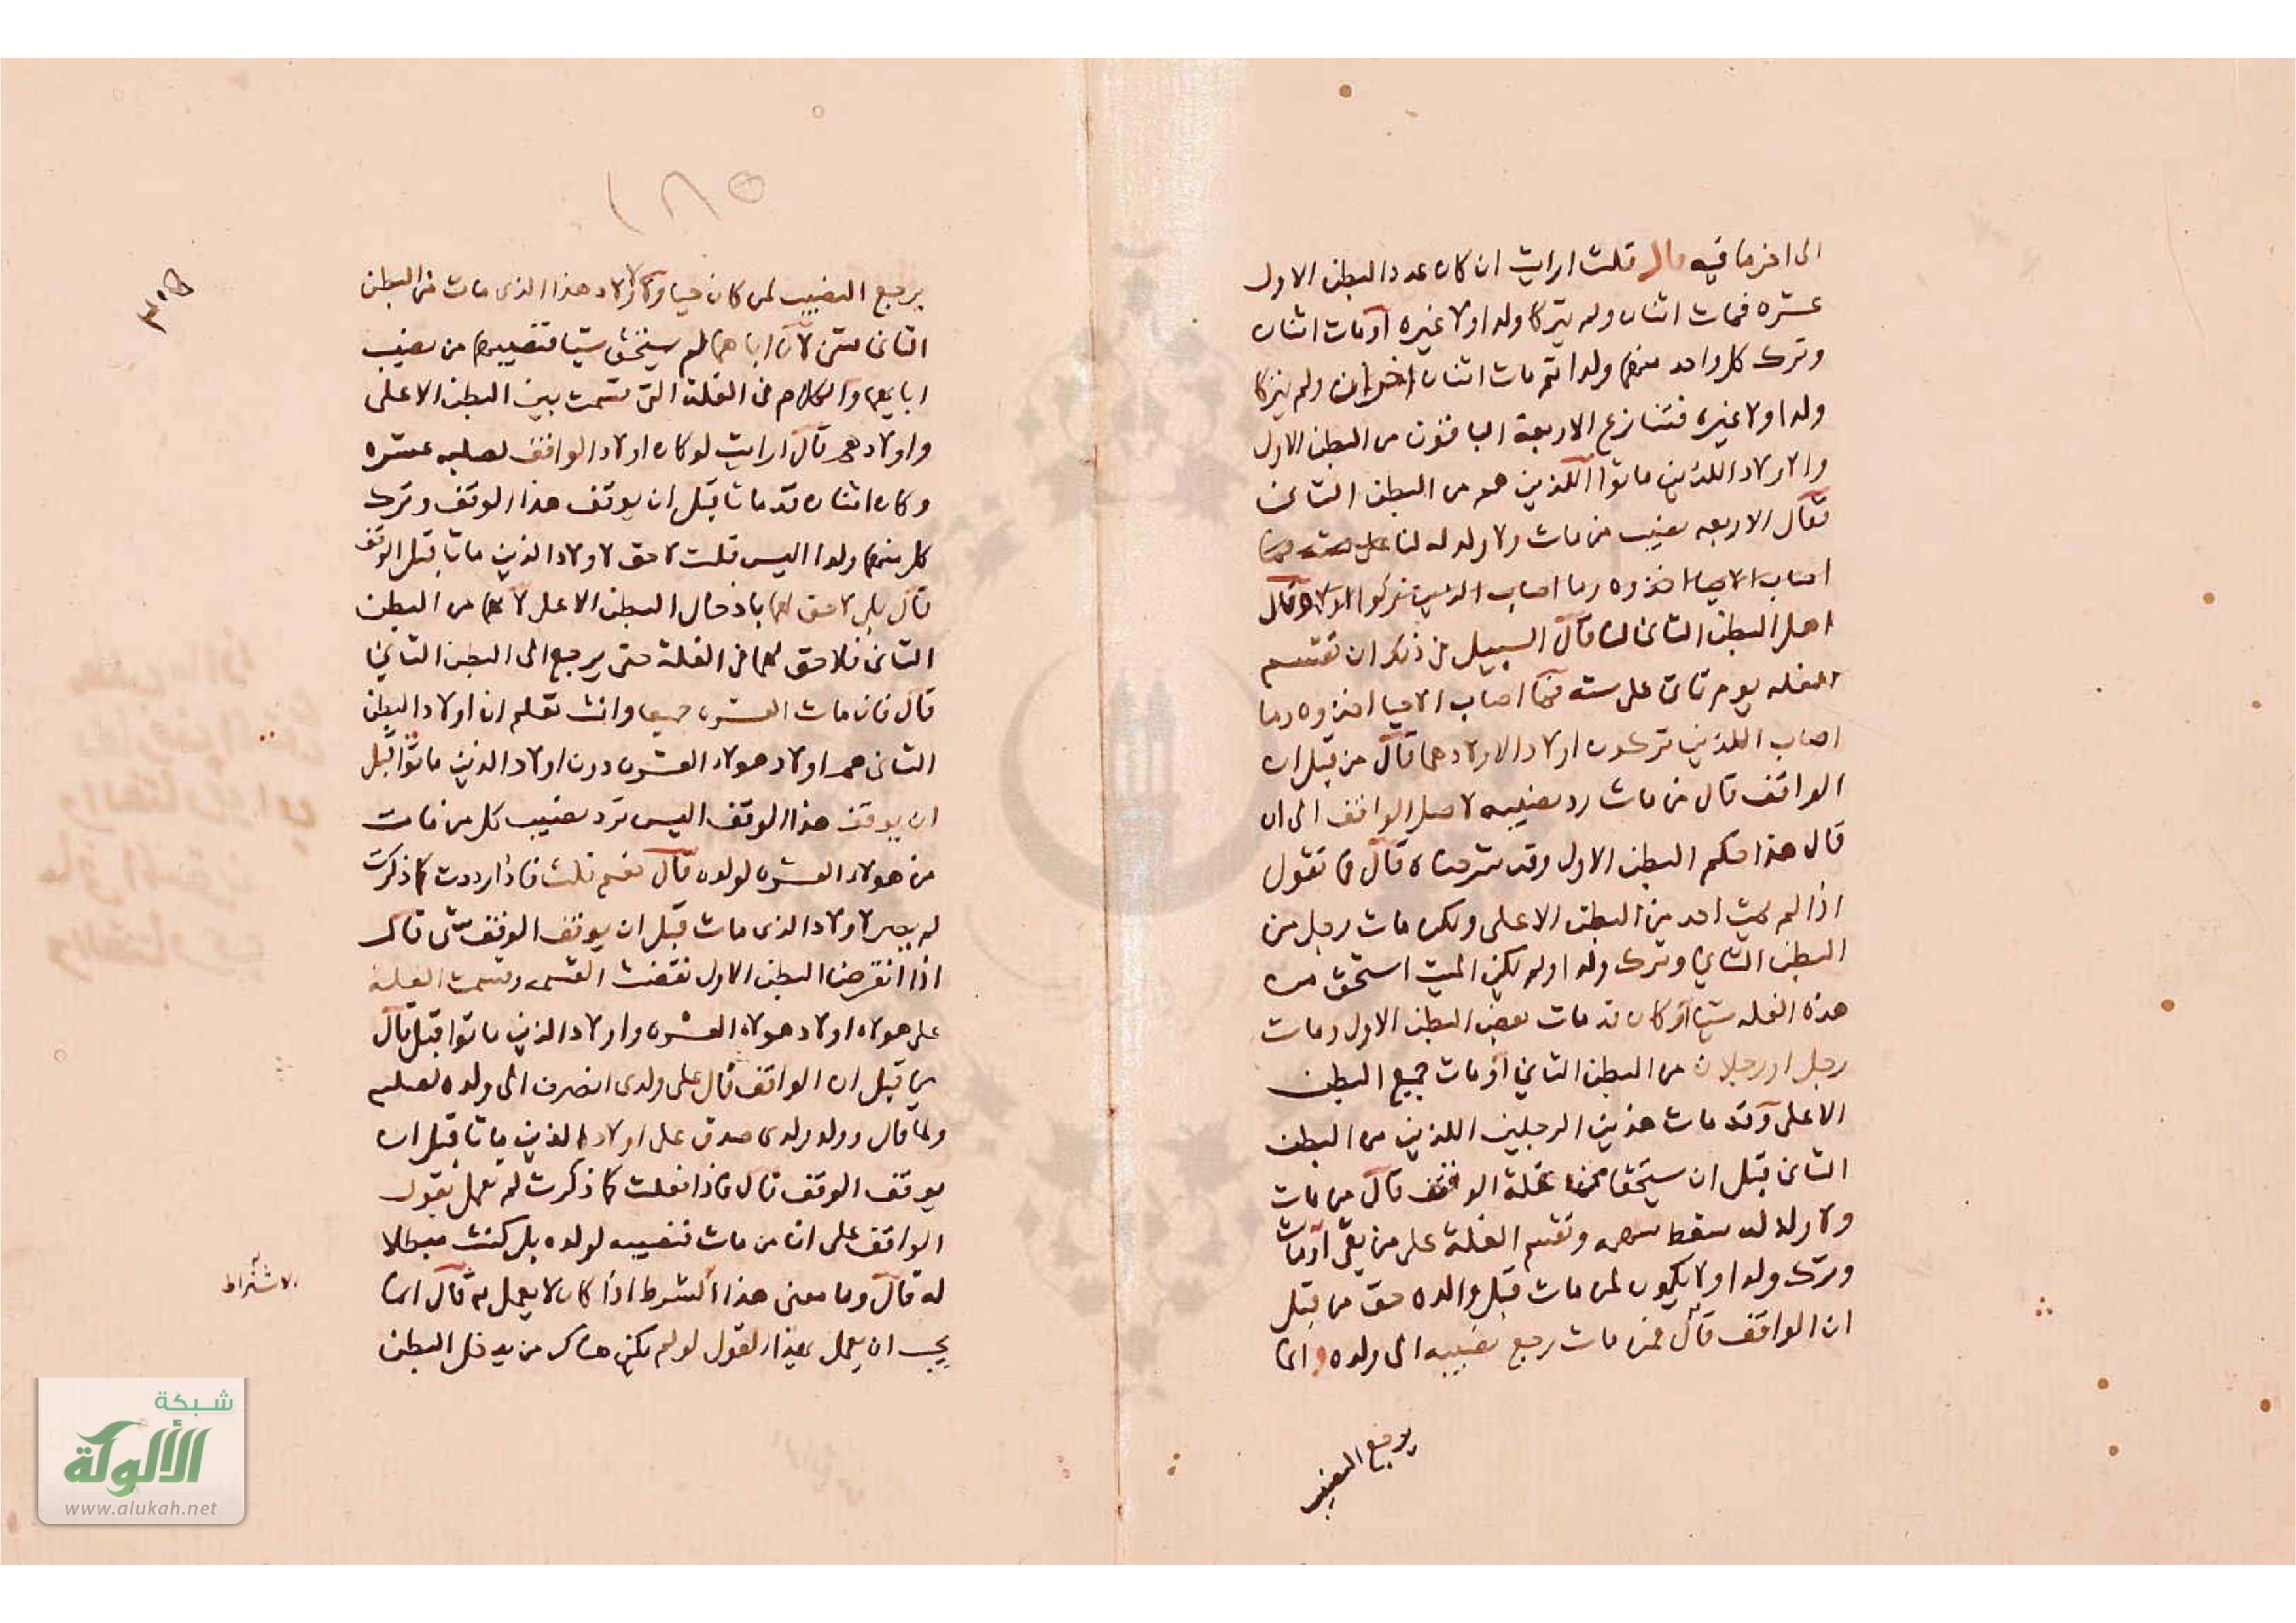 الى اخر ما فيه قال قلت ارايت ان كان عدد البطن الاول
عشره فمات اثنان ولم يتركا ولدا ولا غيره او مات اثنان
وترك كل واحد منهما ولدا ثم مات اثنان اخران ولم يتركا
ولدا ولا غيره فتنازع الاربعة الباقون من البطن الاول
والاولاد اللذين ماتوا اللذين هم من البطن الثاني
فقال الاربعه نصيب من مات ولا ولد له لنا
اصاب الاحيا اخذوه وما اصاب الذين تركوا الاولاد فقال
اهل البطن الثاني لنا قال السبيل في ذلك ان تقسم
الغله يوم تاتي على سته فما اصاب الاحيا اخذوه وما
اصاب اللذين تركوه اولاد الاولادهما قال من قبل ان
الواقف قال من مات رد نصيبه لاصل الواقف الى ان
قال هذا حكم البطن الاول وقد شرحناه قال فما تقول
اذا لم يمت احد من البطن الاعلى ولكن مات رجل من
البطن الثاني وترك ولدا ولم يكن الميت استحق من
هذه الغله شيا او كان قد مات بعض البطن الاول ومات
رجل او رجلان من البطن الثاني او مات جميع البطن
الاعلى وقد مات هذين الرجلين اللذين من البطن
الثاني قبل ان يستحقا من غلة الوقف قال من مات
ولا ولد له سقط سهمه وتقسم الغلة على من بقى او مات
وترك ولدا ولا يكون لمن مات قبل والده حق من قبل
ان الواقف قال فمن مات رجع نصيبه الى ولده وانما
يرجع النصيب
١٨٥
٣٠٥
يرجع النصيب لمن كان حيا ولاولاد هذا الذى مات من البطن
الثانى لان اباهما لم يستحق شيا فنصيبهما من نصيب
ابايهم والكلام فى الغلة التى قسمت بين البطن الاعلى
واولادهم قال ارايت لو كان اولاد الواقف لصلبه عشره
وكان اثنان قد ماتا قبل ان يوقف هذا الوقف وترك
كل منهما ولدا اليس قلت لا حق لاولاد الذين ماتا قبل الوقف
قال بلى لا حق لهما بادخال البطن الاعلى لانهما من البطن
الثانى فلا حق لهما فى الغلة حتى يرجع الى البطن الثاني
قال فان مات العشره جميعا وانت تعلم ان اولاد البطن
الثانى هم اولاد هولاء العشره دون اولاد الذين ماتوا قبل
ان يوقف هذا الوقف اليس ترد نصيب كل من مات
من هولاء العشره لولده قال نعم قلت فاذا رددت كما ذكرت
لم يصر لاولاد الذى مات قبل ان يوقف الوقف شى قال
اذا انقرض البطن الاول نقضت القسمه وقسمت الغلة
على هولاء اولاد هولاء العشره واولاد الذين ماتوا قبل قال
من قبل ان الواقف قال على ولدى انصرف الى ولده لصلبه
ولما قال وولد ولدى صدق على اولاد الذين ماتا قبل ان
يوقف الوقف قال فاذا فعلت كما ذكرت لم تعمل بقول
الواقف على ان من مات فنصيبه لولده بل كنت مبطلا
له قال وما معنى هذا الشرط اذا كان لا يعمل به قال انما
يجب ان يعمل بهذا القول لو لم يكن هناك من يدخل البطن
الاشتراط
شبكة
الألوكة
www.alukah.net